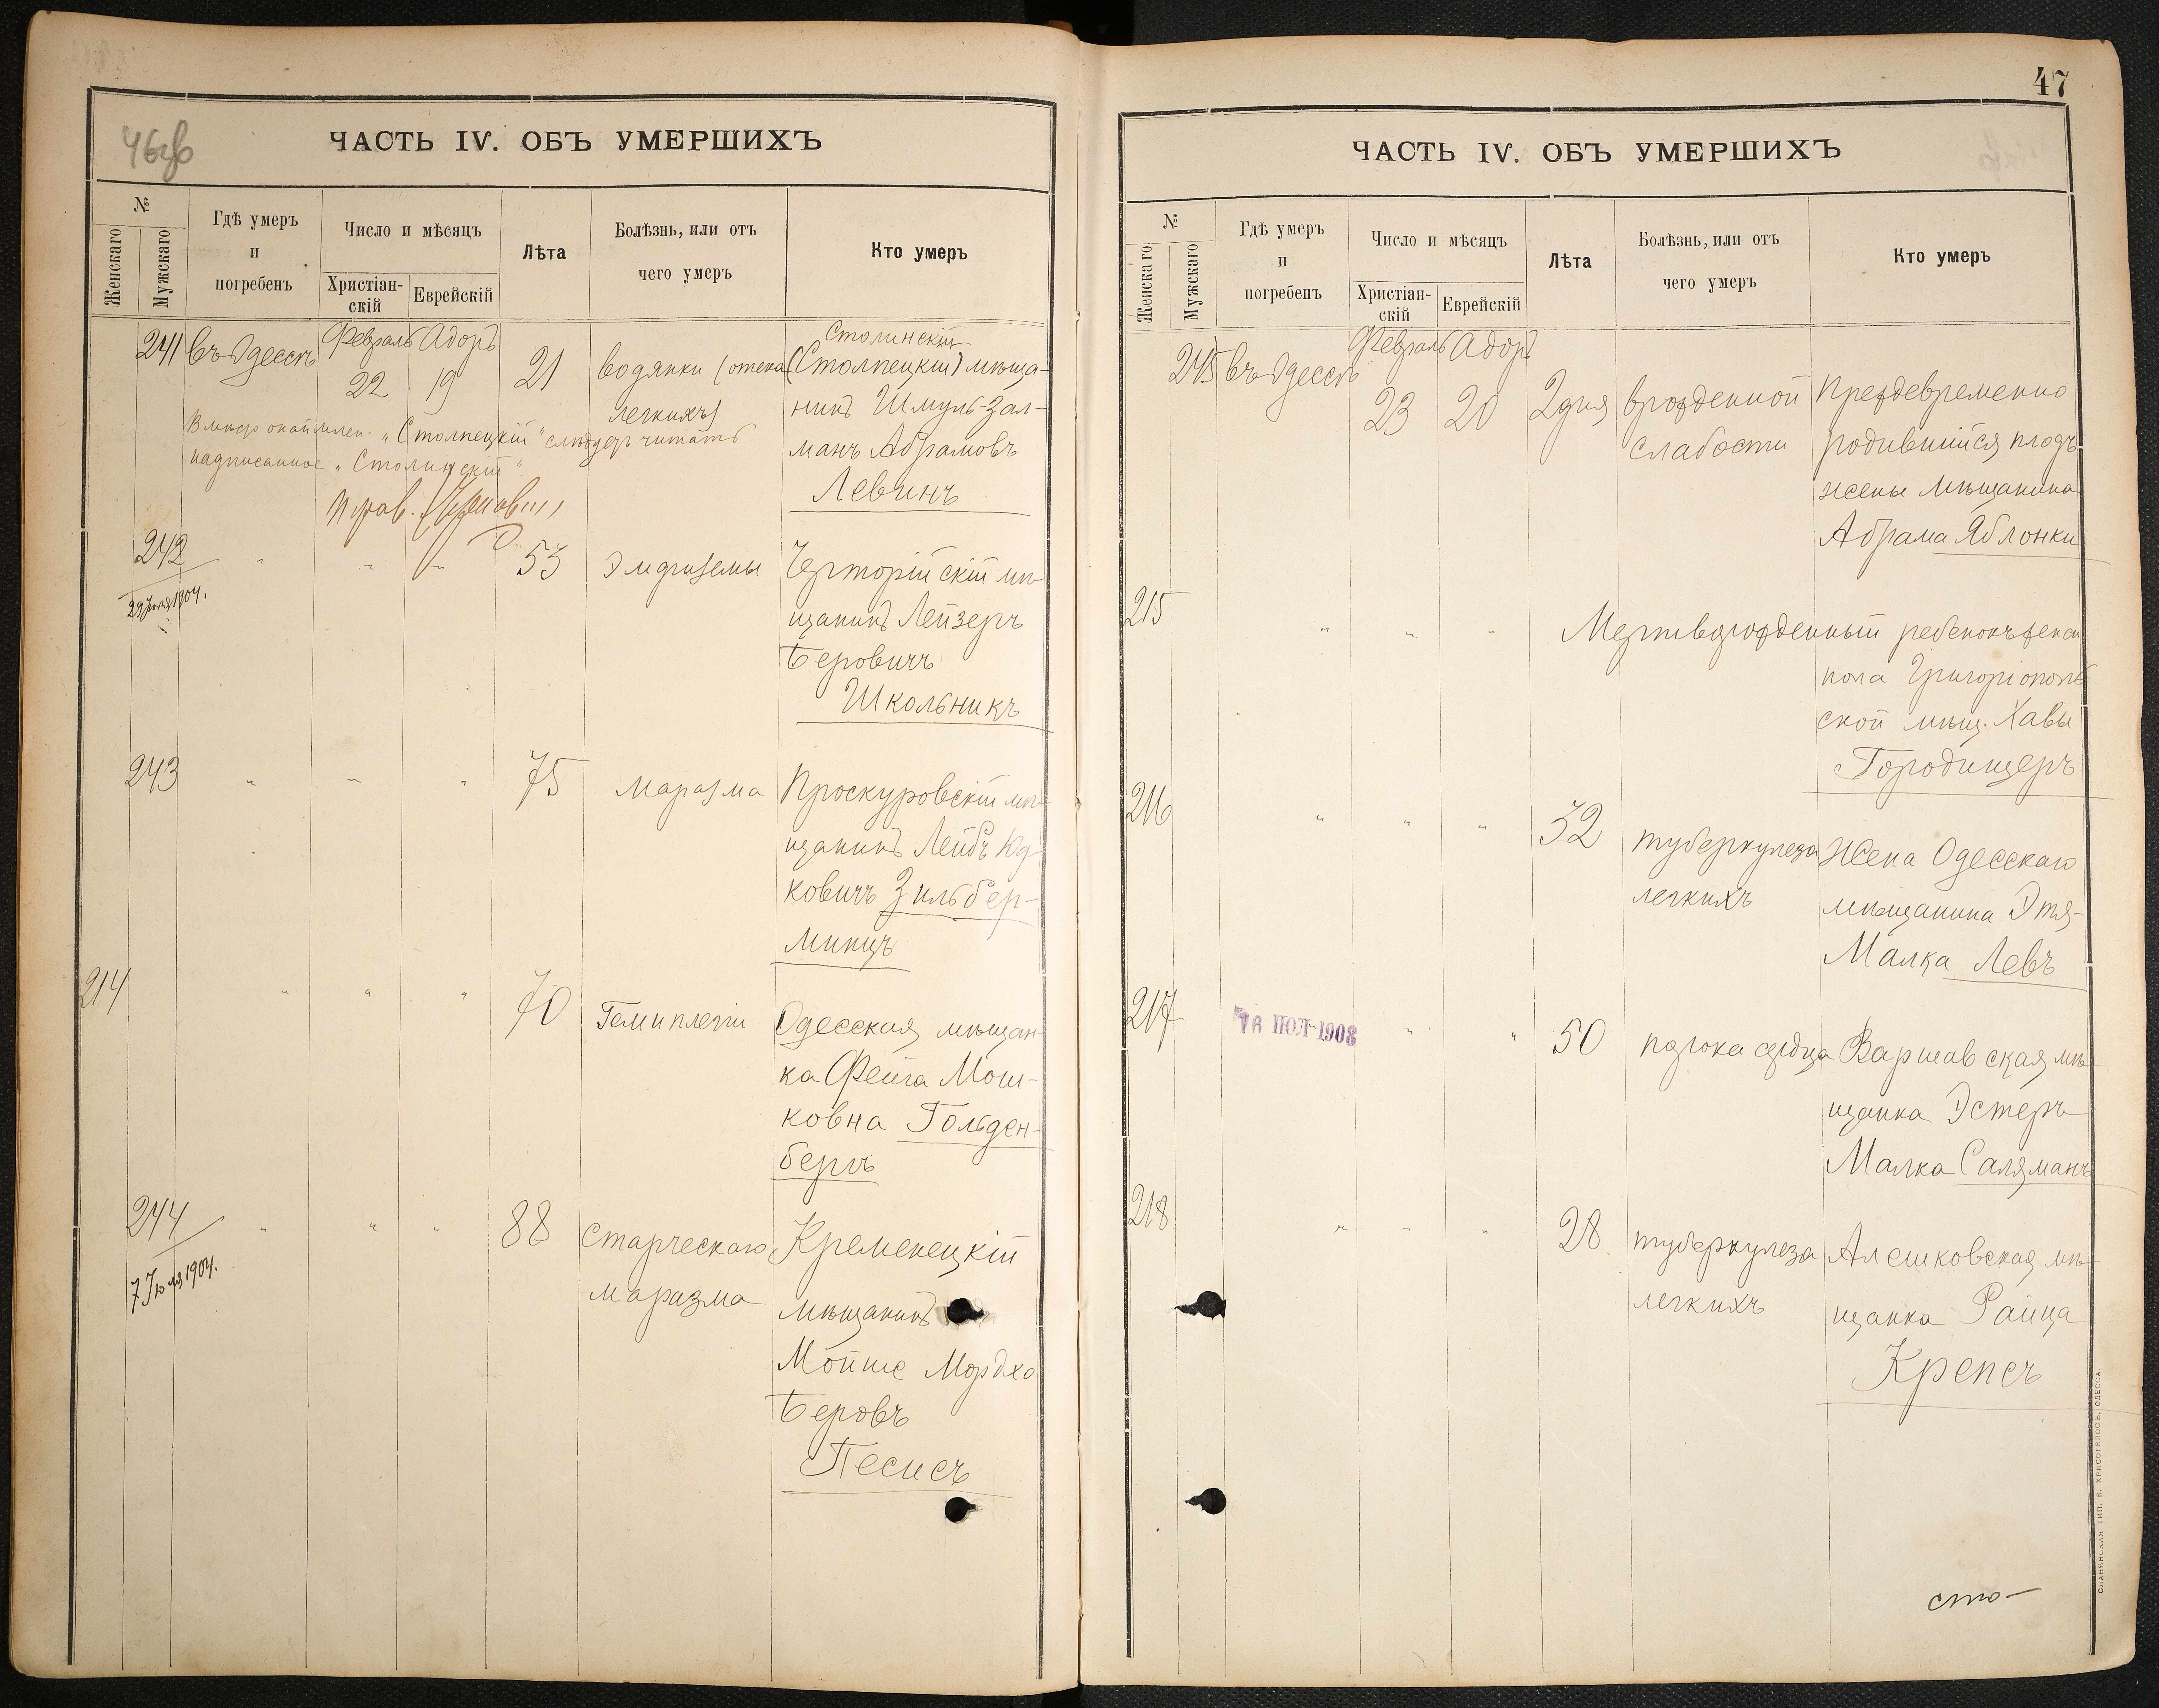 46об
ЧАСТЬ IV. ОБЪ УМЕРШИХЪ
№
Женскаго
Мужскаго
Гдѣ умеръ
и
погребенъ
Число и мѣсяцъ
Христіан-
скій
Еврейскій
Лѣта
Болѣзнь, или отъ
чего умеръ
Кто умеръ
241 въ Одессѣ Февраль 22 Адоръ 19 21 водянки (отека
легкихъ)
Столинскій
(Столпецкій) мѣща-
нинъ Шмуль-Зал-
манъ Абрамовъ
Левинъ
"Столпецкій" слѣдуетъ читать
надписанное "Столинскій"
242 " " " 53 Эмфиземы Чарторійскій мѣ-
щанинъ Лейзеръ
Беровичъ
Школьникъ
29 1904.
243 " " " 75 Маразма Проскуровскій мѣ-
щанинъ Лейбъ Юд-
ковичъ Зильбер-
минцъ
214 " " " 70 Гемиплегіи Одесская мѣщан-
ка Фейга Мош-
ковна Гольден-
бергъ
244 " " " 88 Старческаго
маразма
Кременецкій
мѣщанинъ
Мойше Мордко
Беровъ
Песисъ
7 Іюля 1904.
47
ЧАСТЬ IV. ОБЪ УМЕРШИХЪ
№
Женскаго
Мужскаго
Гдѣ умеръ
и
погребенъ
Число и мѣсяцъ
Христіан-
скій
Еврейскій
Лѣта
Болѣзнь, или отъ
чего умеръ
Кто умеръ
245 въ Одессѣ Февраль 23 Адоръ 20 2 дня врожденной
слабости
Преждевременно
родившійся плодъ
жены мѣщанина
Абрама Яблонки
215 " " " Мертворожденный ребенокъ женск
пола Григоріополь
ской мѣщ. Хавы
Городищеръ
216 " " " 32 туберкулеза
легкихъ
Жена Одесскаго
мѣщанина Этя-
Малка Левъ
217 16 ІЮЛ 1908 " " 50 порока сердца Варшавская мѣ-
щанка Эстеръ
Малка Саляманъ
218 " " " 28 туберкулеза
легкихъ
Алешковская мѣ-
щанка Райца
Крепсъ
сто-
СЛАВЯНСКАЯ ТИП. Е. ХРИСОГЕЛОСЪ, ОДЕССА